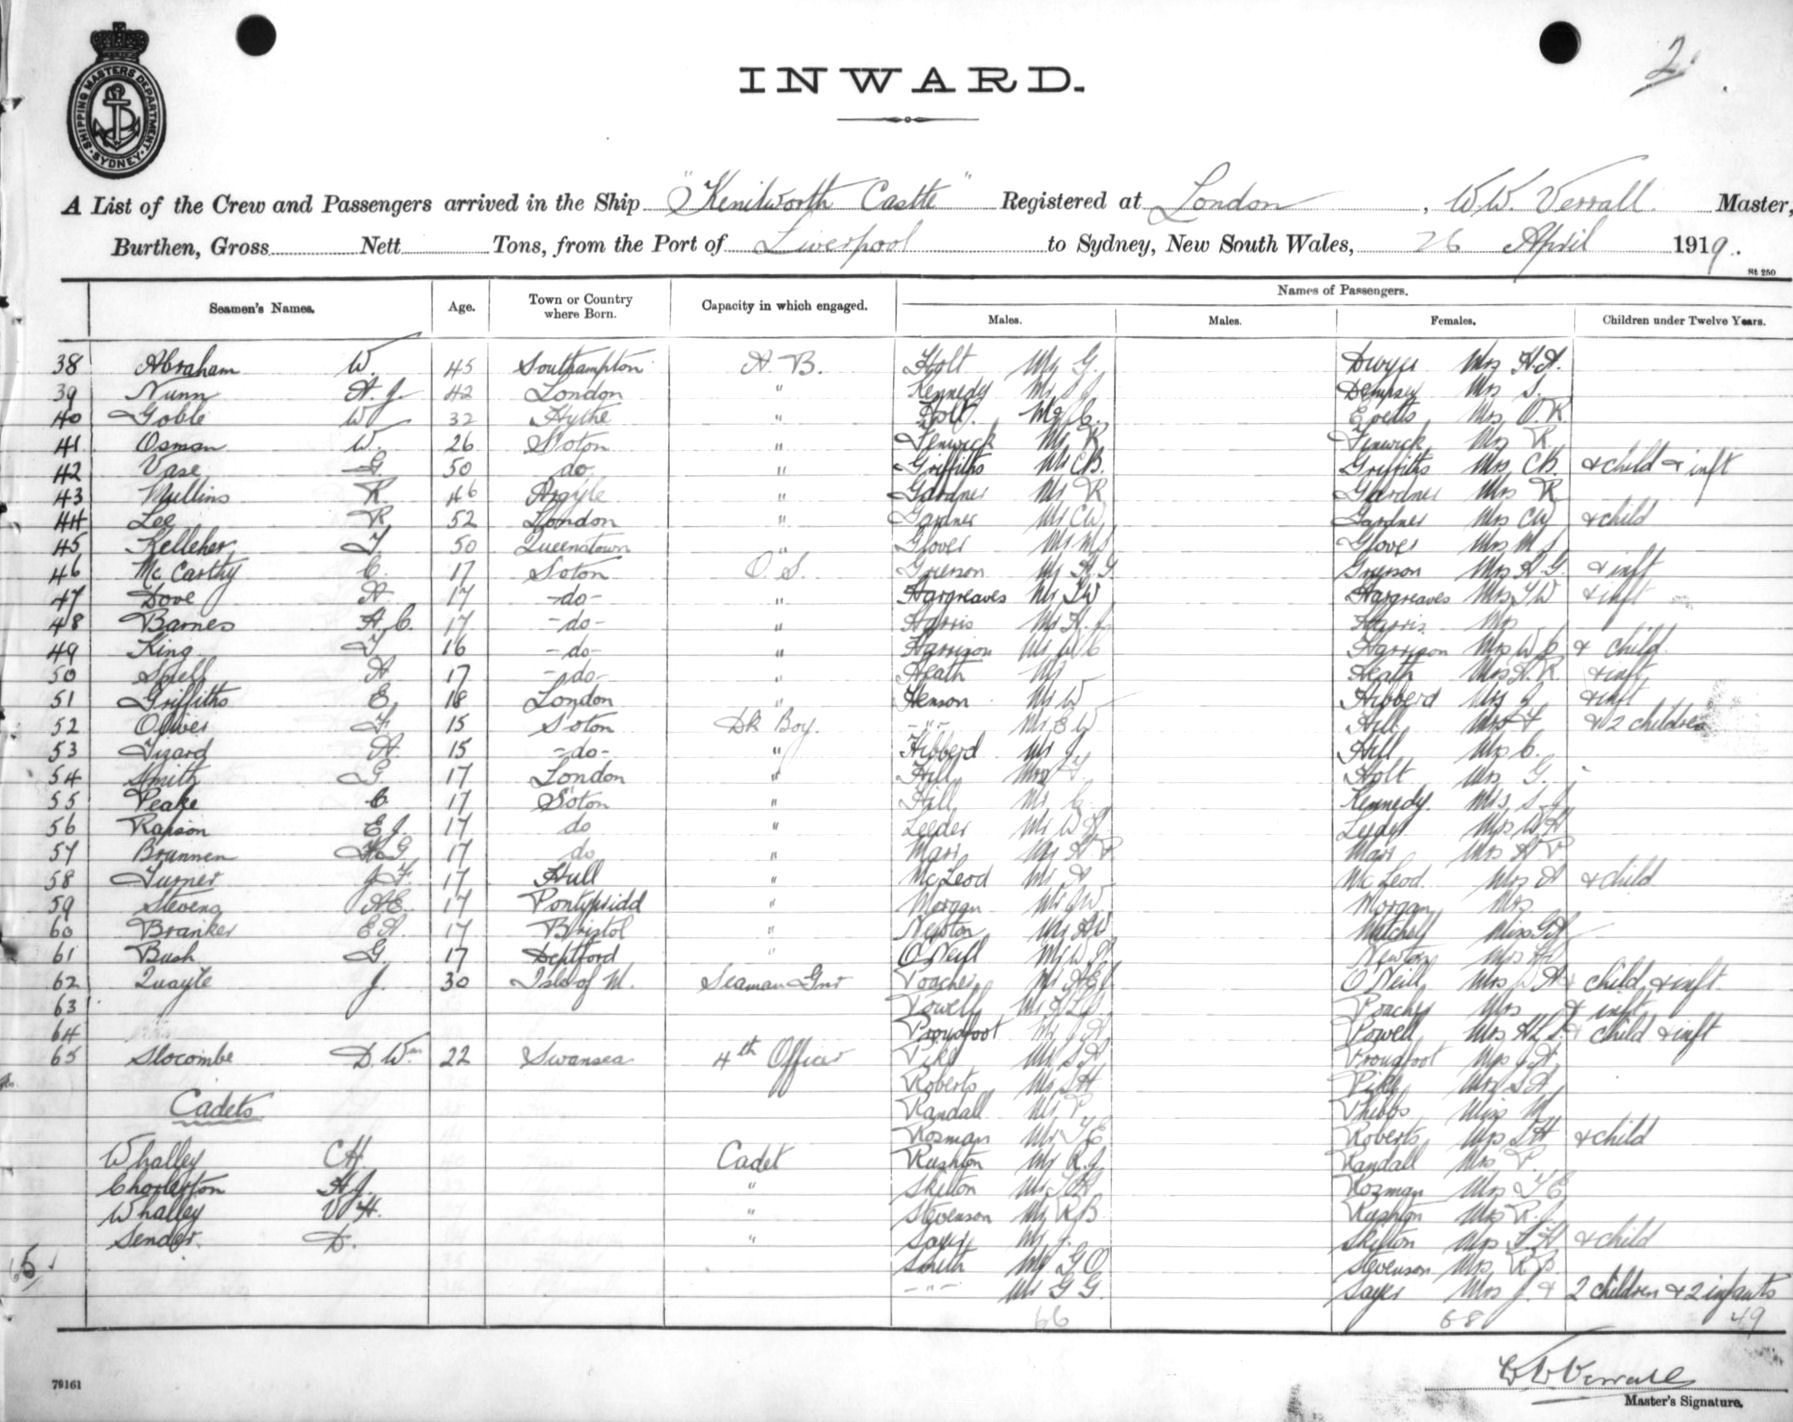 SHIPPING MASTERS DEPARTMENT SYDNEY
2
INWARD.
A List of the Crew and Passengers arrived in the Ship "Kenilworth Castle" Registered at London, W.W. Verrall Master,
Burthen, Gross Nett Tons, from the Port of Liverpool to Sydney, New South Wales, 26 April 1919.
St 250
Seamen's Names. Age. Town or Country where Born. Capacity in which engaged. Names of Passengers.
Males. Males. Females. Children under Twelve Years.
38 Abraham W. 45 Southampton A. B. Holt Mr G. Dwyer Mrs H.A.
39 Nunn A. J. 42 London " Kennedy Mr S J Dempsey Mrs S.
40 Goble W 32 Hythe " Holt Mr C. Evetts Mrs O.K
41 Osman W. 26 Soton " Fenwick Mr R. Fenwick Mrs R.
42 Vase G 50 do " Griffiths Mr C.B. Griffiths Mrs C.B. & child & inft
43 Mullins R 46 Argyle " Gardner Mr R Gardner Mrs R
44 Lee R 52 London " Gardner Mr C W Gardner Mrs C W & child
45 Kelleher T 50 Queenstown " Glover Mr M J Glover Mrs M J
46 McCarthy C. 17 Soton O. S. Grierson Mr A. G. Grierson Mrs A G. & inft
47 Dove A 17 -do- " Hargreaves Mr T W Hargreaves Mrs T W & inft
48 Barnes A. C. 17 -do- " Harris Mr Harris Mrs
49 King T 16 -do- " Harrison Mr W C Harrison Mrs W C & child
50 A 17 -do- " Heath Mr Heath Mrs A. R & inft
51 Griffiths E 18 London " Henson Mr W Hibberd Mrs J & inft
52 Oliver F. 15 Soton Dk Boy. -"- Mr E W Hill Mrs F & 2 children
53 Tizard A. 15 -do- " Hibberd Mr J. Hill Mrs C.
54 Smith G. 17 London " Hill Mr F. Holt Mrs G.
55 Peake C 17 Soton " Hill Mr C. Kennedy Mrs S J
56 Rapson E J. 17 do " Leeder Mr W H Leeder Mrs W H
57 Brunnen H. G 17 do " Marr Mr A P Marr Mrs A P
58 Turner J F 17 Hull " McLeod Mr A McLeod Mrs A & child
59 Stevens A E 17 Pontypridd " Morgan Mr J W Morgan Mrs
60 Branker E A 17 Bristol " Newton Mr A W Miss
61 Bush G 17 Deptford " O'Neill Mr W A Newton Mrs
62 Quayle J. 30 Isle of M. Seaman Gnr Poacher Mr A E C O'Neill Mrs W A & child & inft
63 Powell Mr H L S Poacher Mrs & inft
64 Proudfoot Mr J A Powell Mrs H L S. & child & inft
65 Slocombe D. Wm. 22 Swansea 4th Officer Pike Mr S A Proudfoot Mrs J A
Roberts Mr L H Pike Mrs S A
Cadets Randall Mr P. Phibbs Miss M
Rozman Mr T E Roberts Mrs L H & child
Whalley C H. Cadet Rushton Mr R. J Randall Mrs P.
Chorleton A J. " Skelton Mr T H Rozman Mrs T E
Whalley V H. " Stevenson Mr R B. Rushton Mrs R. J
Sender D. " Sayer Mr J. Skelton Mrs T. H & child
65 Smith Mr G O Stevenson Mrs R B.
-"- Mr G G. Sayer Mrs J. & 2 children & 2 infants
66 68 49
W W Verrall
79161 Master's Signature.